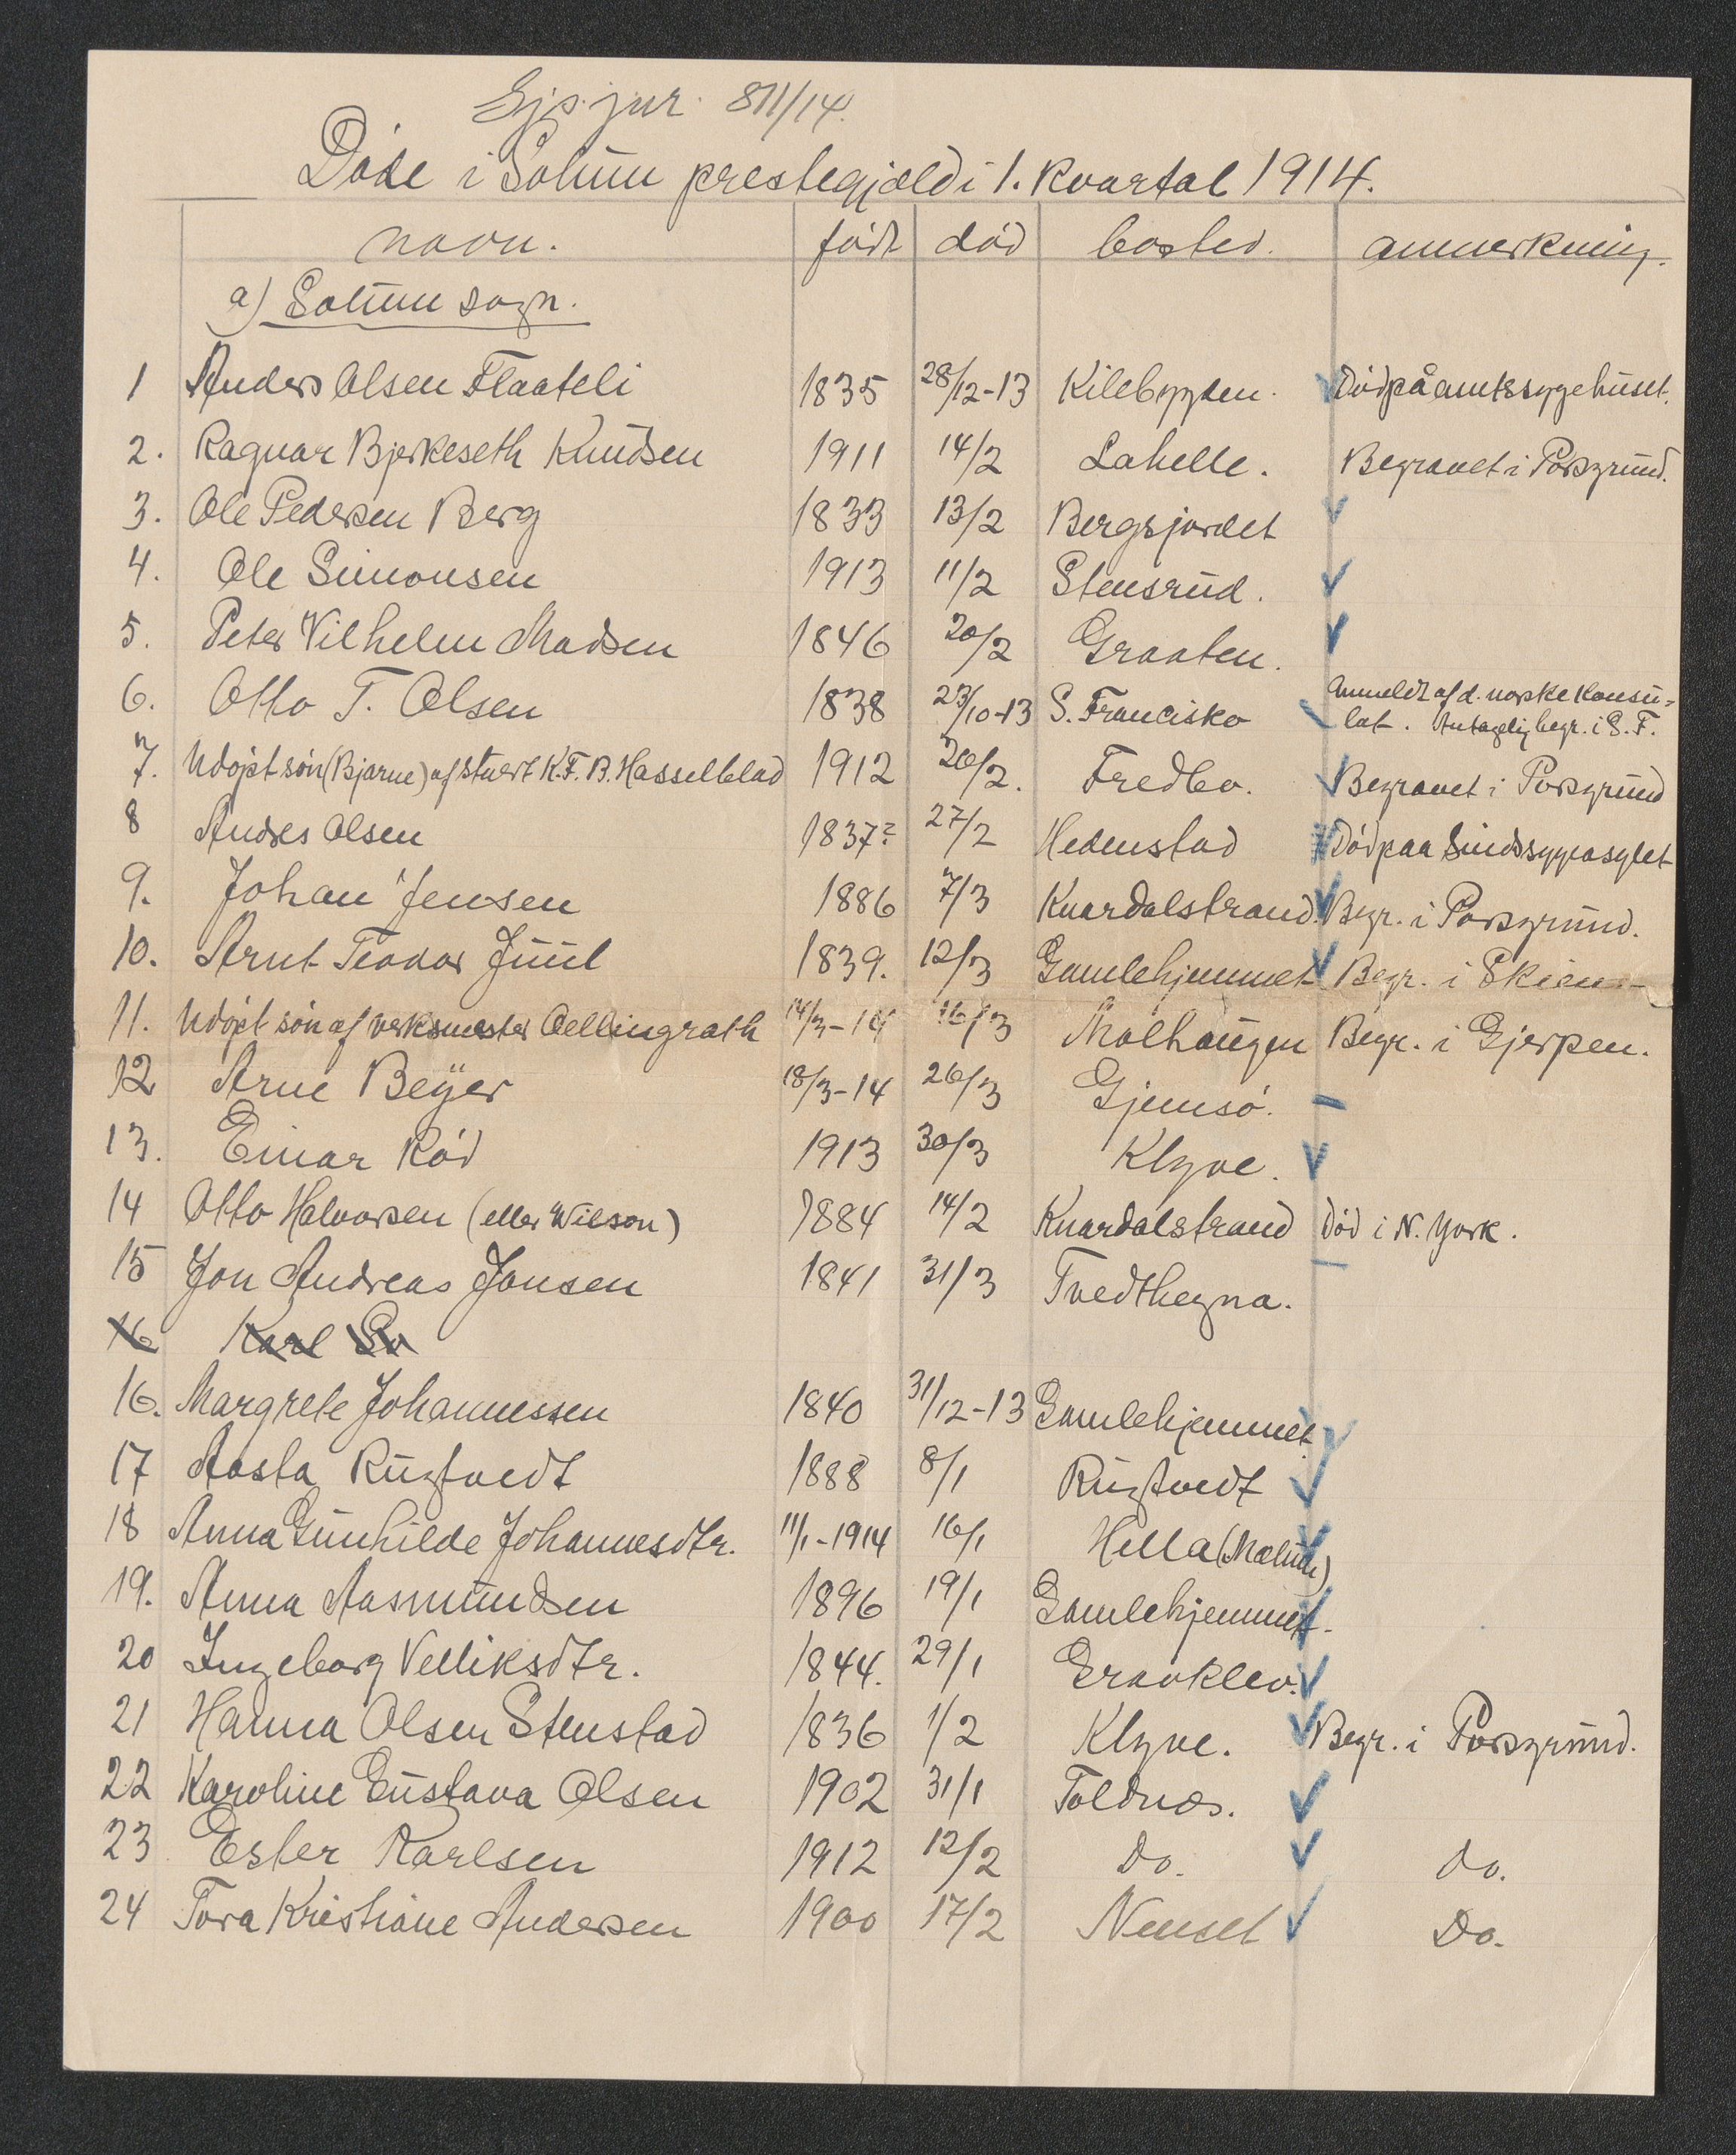 811/14.
Døde i Solum prestegjæld i 1. kvartal 1914.
navn. født død bosted. anmerkning.
a) Solum sogn.
1 Anders Olsen Flaateli 1835 28/12-13 Kilebygden. Død på amtssygehuset.
2. Ragnar Bjerkeseth Knudsen 1911 14/2 Lahelle. Begravet i Porsgrund.
3. Ole Pedersen Berg 1833 13/2 Bergsjordet
4. Ole Simonsen 1913 11/2 Stensrud.
5. Peter Vilhelm Madsen 1846 20/2 Graaten.
6. Otto T. Olsen 1838 23/10-13 S. Francisko Anmeldt af d. norske Konsu-
lat. Antagelig begr. i S. F.
7. Udøpt søn (Bjarne) af stuert K. F. B. Hasselblad 1912 26/2. Fredbo. Begravet i Porsgrund
8 Andres Olsen 1837? 27/2 Hedenstad Død paa Sindssygeasylet
9. Johan Jensen 1886 7/3 Knardalstrand. Begr. i Porsgrund.
10. Arnt Teodor Juul 1839. 12/3 Gamlehjemmet Begr. i Skien
11. Udøpt søn af verksmester Oellingrath 14/3-14 16/3 Molhaugen Begr. i Gjerpen.
12 Arne Beÿer 18/3-14 26/3 Gjemsø.
13. Einar Rød 1913 30/3 Klyve.
14 Otto Halvorsen (eller Wilson) 1884 14/2 Knardalstrand Død i N. York.
15 Jon Andreas Jonsen 1841 31/3 Tvedthegna.
16 Karl So
16. Margrete Johannessen 1840 31/12-13 Gamlehjemmet
17 Aasta Rugtvedt 1888 8/1 Rugtvedt
18 Anna Gunhilde Johannesdtr. 11/1-1914 16/1 Hella (Mælum)
19. Anna Aasmundsen 1896 19/1 Gamlehjemmet.
20 Ingeborg Velliksdtr. 1844. 29/1 Graaklev.
21 Hanna Olsen Stenstad 1836 1/2 Klyve. Begr. i Porsgrund.
22 Karoline Gustava Olsen 1902 31/1 Toldnæs.
23 Ester Karlsen 1912 12/2 Do. do.
24 Tora Kristiane Andersen 1900 17/2 Nenset Do.